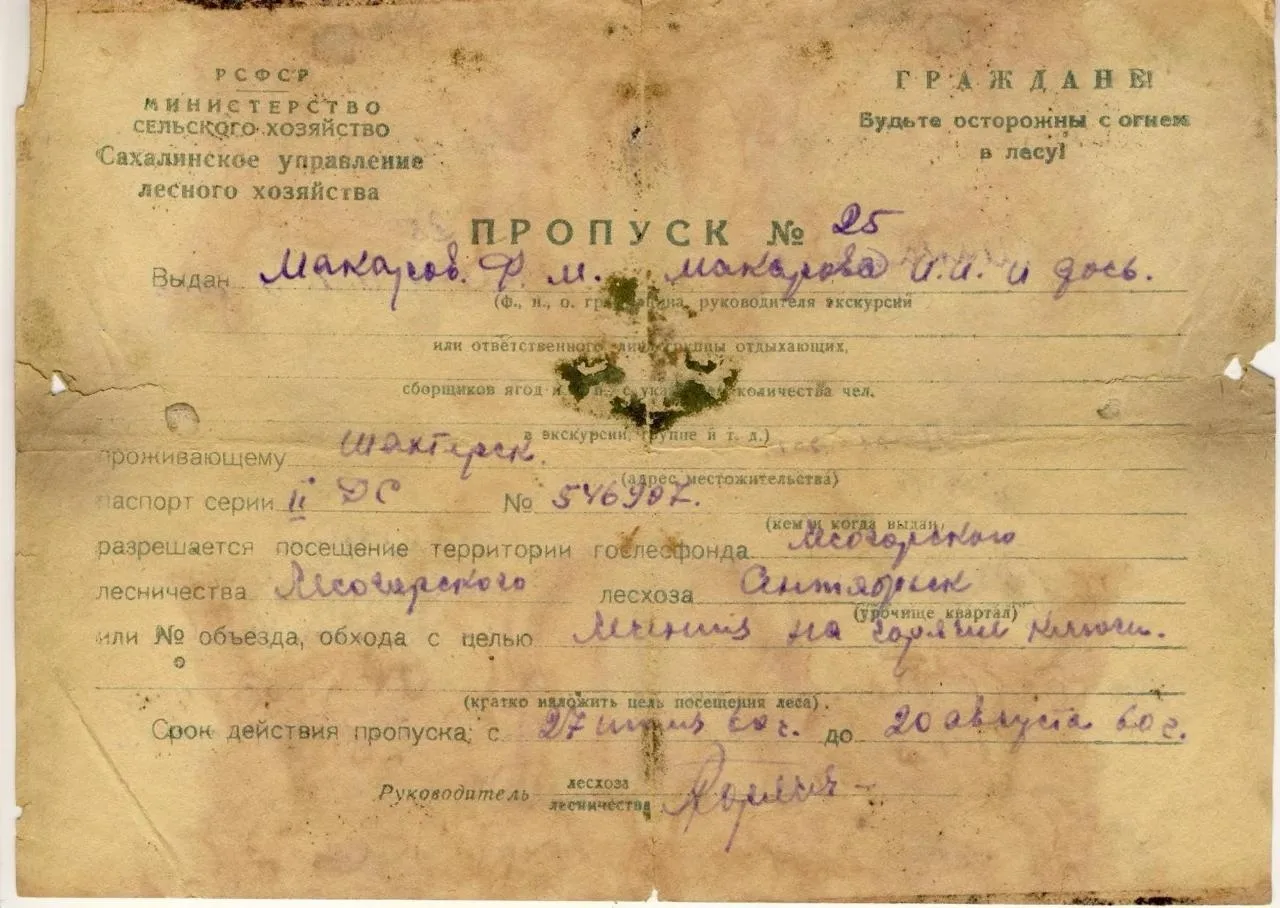 РСФСР
МИНИСТЕРСТВО
СЕЛЬСКОГО ХОЗЯЙСТВО
Сахалинское управление
лесного хозяйства
ГРАЖДАНЕ!
Будьте осторожны с огнем
в лесу!
ПРОПУСК № 25
Выдан Макаров. Ф. М. Макарова и дось.
(ф., и., о. гражданина, руководителя экскурсии
или ответственного лица группы отдыхающих,
сборщиков ягод количества чел.
в экскурсии, группе и т. д.)
проживающему Шахтерск.
(адрес местожительства)
паспорт серии II ДС № 546907.
(кем и когда выдан)
разрешается посещение территории гослесфонда Лесогорского
лесничества Лесогорского лесхоза Сентябрьск
(урочище квартал)
или № объезда, обхода с целью Лечения на горячи ключи.
(кратко изложить цель посещения леса)
Срок действия пропуска; с 27 60 г. до 20 августа 60 г.
Руководитель лесхоза
лесничества